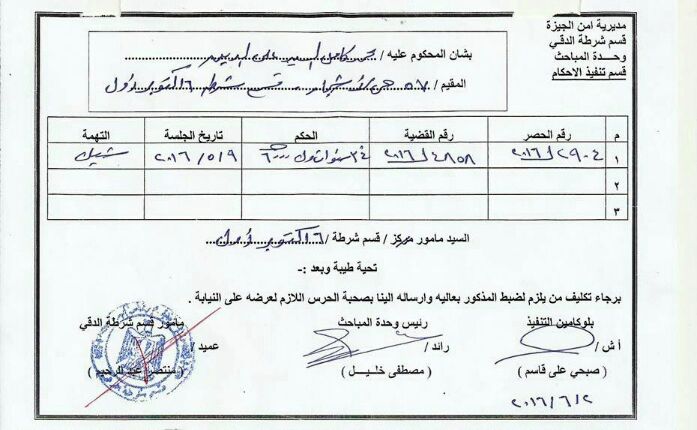 مديرية امن الجيزة
قسم شرطة الدقي
وحدة المباحث
قسم تنفيذ الاحكام
بشان المحكوم عليه / كامل السيد على
المقيم / ٥٧ قسم شرطة ٦ اكتوبر اول
م رقم الحصر رقم القضية الحكم تاريخ الجلسة التهمة
١ ٢٩٠٤ / ٢٠١٦ ٤٨٥٨ / ٢٠١٦ ٣ سنوات ٢٠١٦/٥/٩ شيك
٢
٣
السيد مامور مركز / قسم شرطة / ٦ اكتوبر اول
تحية طيبة وبعد :-
برجاء تكليف من يلزم لضبط المذكور بعاليه وارساله الينا بصحبة الحرس اللازم لعرضه على النيابة .
بلوكامين التنفيذ رئيس وحدة المباحث مامور قسم شرطة الدقي
أ ش / رائد / عميد /
( صبحي على قاسم ) ( مصطفى خليل ) ( منتصر عبد الرحيم )
٢٠١٦/٦/٢